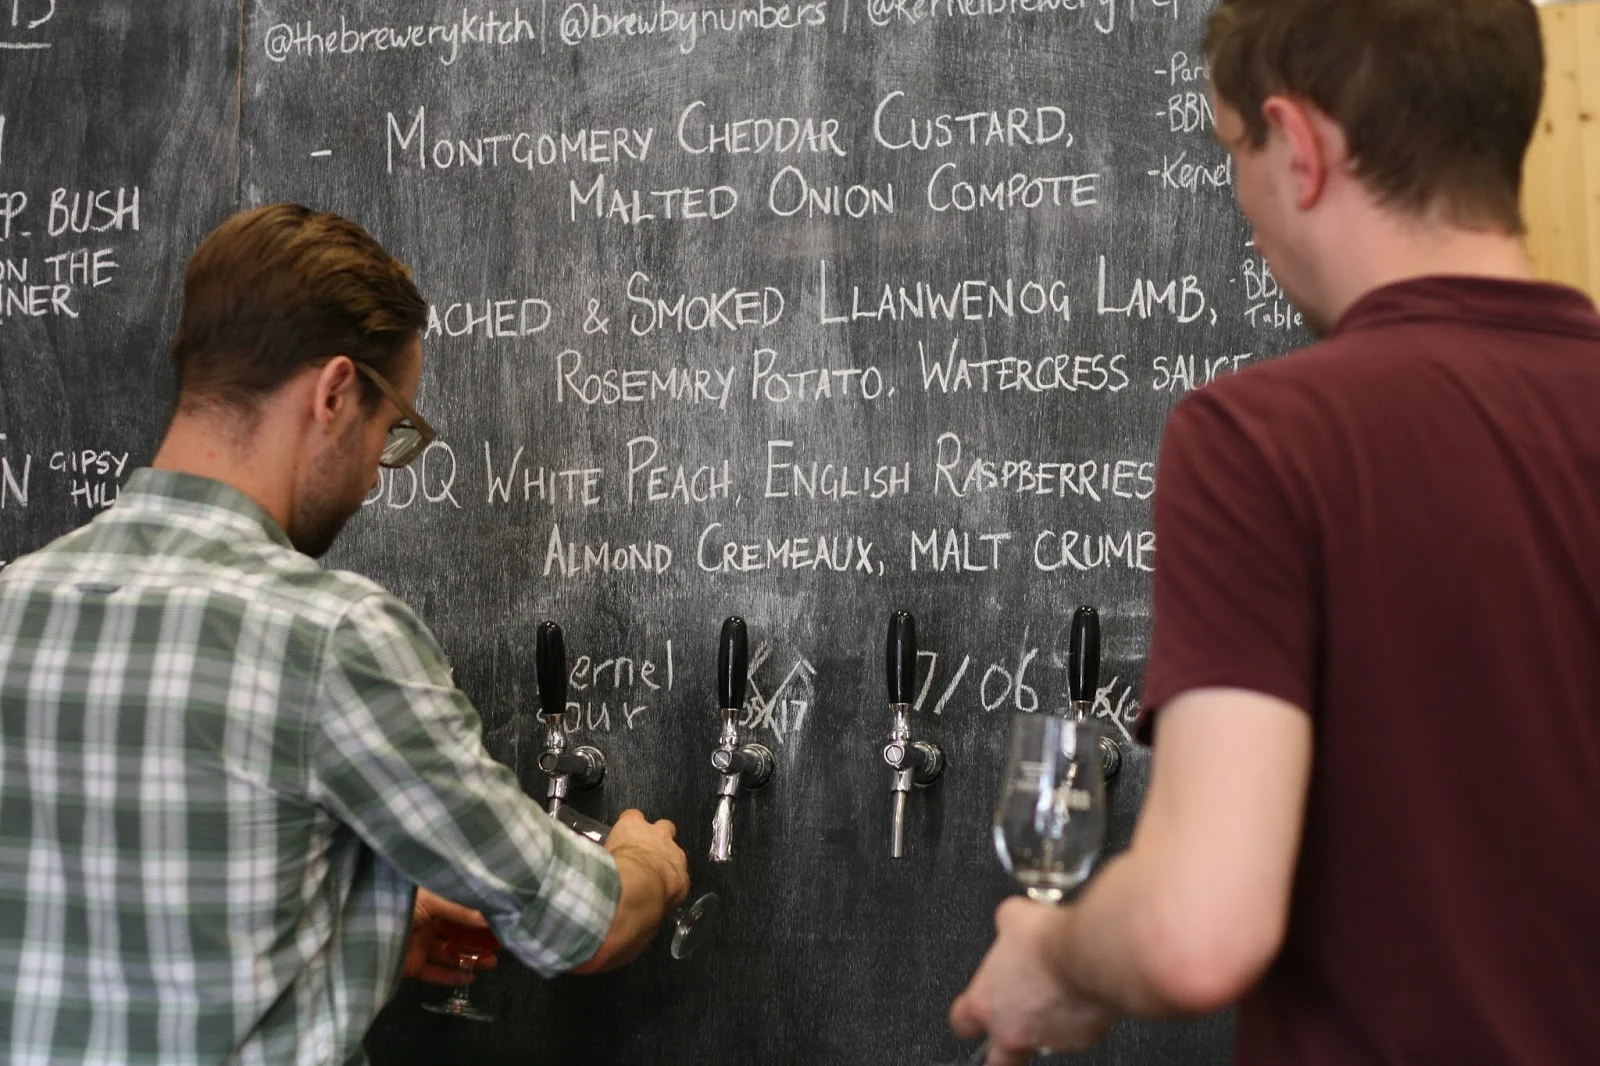 @thebrewerykitch | @brewbynumbers | @kernelbrewery |
- MONTGOMERY CHEDDAR CUSTARD,
MALTED ONION COMPOTE
ACHED & SMOKED LLANWENOG LAMB,
ROSEMARY POTATO, WATERCRESS SAUCE
WHITE PEACH, ENGLISH RASPBERRIES
ALMOND CREMEAUX, MALT CRUMB
ernel
our
7/06
BUSH
ON THE
NER
GIPSY
HILL
-Par
-BBN
-Kernel
Table